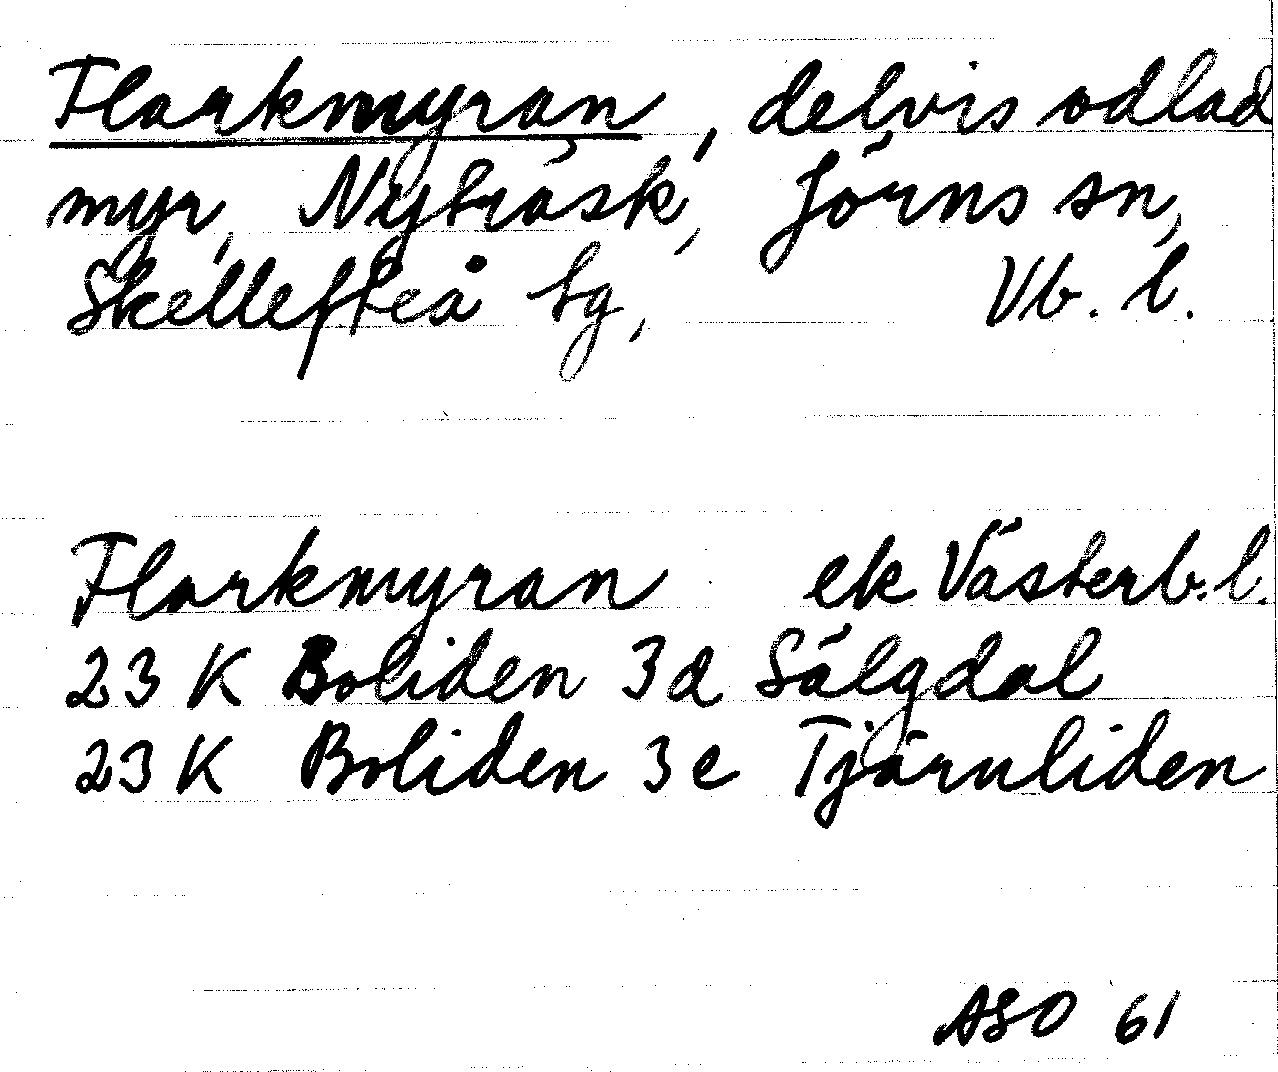 Flarkmyran, delvis odlad
myr, Nyträsk, Jörns sn,
Skellefteå tg, Vb. l.
Flarkmyran ek Västerb. l.
23 K Boliden 3d Sälgdal
23 K Boliden 3e Tjärnliden
ASO 61